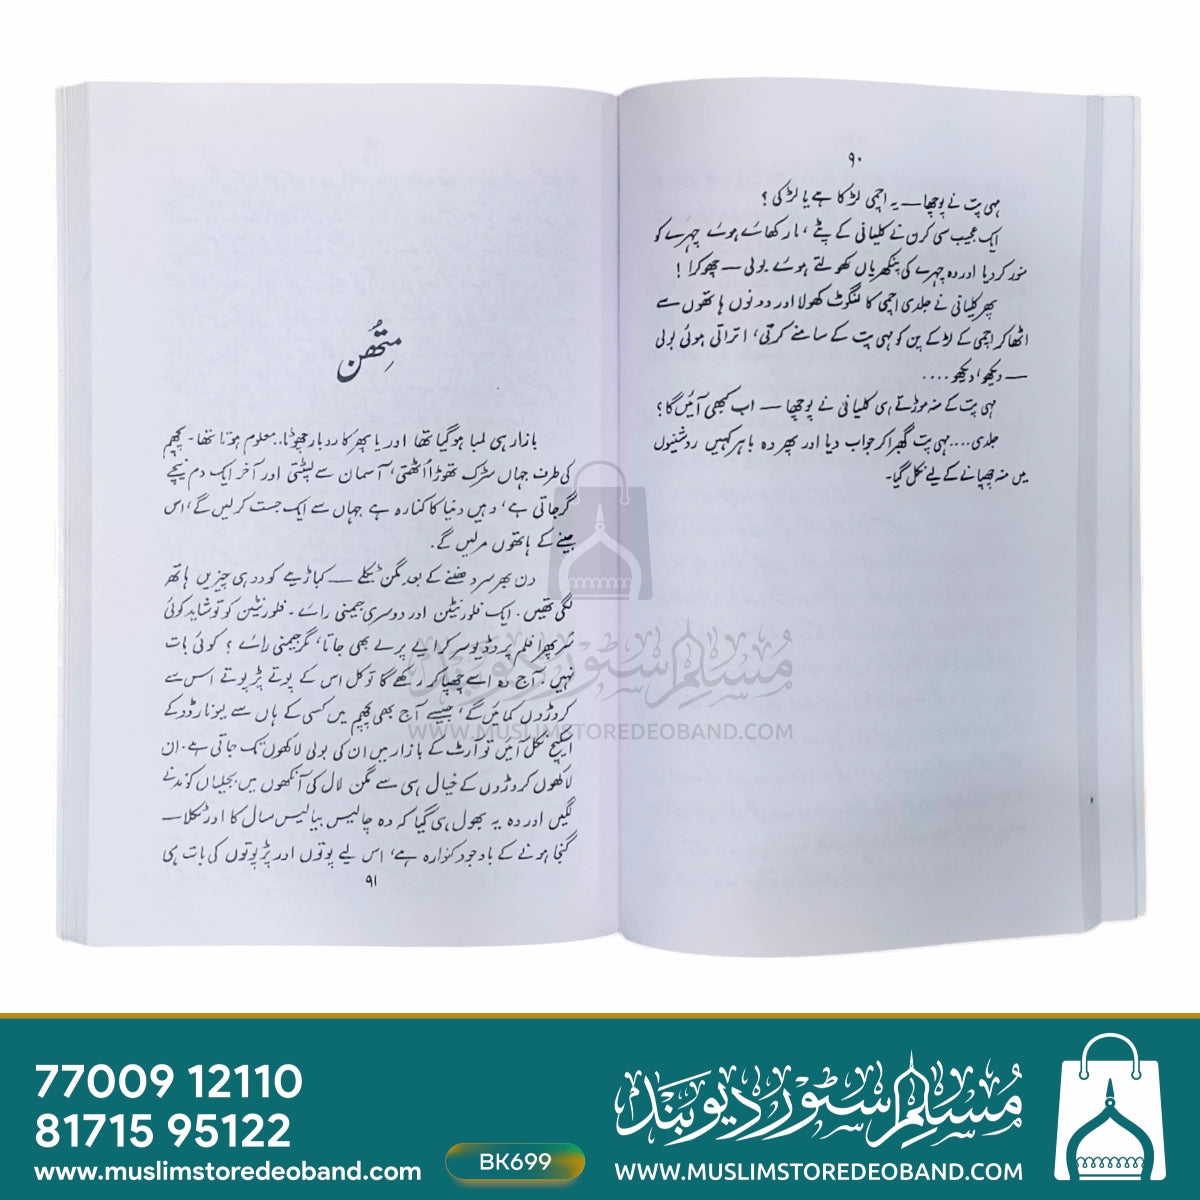 ۹۰
مہی پت نے پوچھا — یہ اچمی لڑکا ہے یا لڑکی؟
ایک عجیب سی کرن نے کلیانی کے پٹے، مار کھائے ہوئے چہرے کو
منور کر دیا اور وہ چہرے کی پنکھڑیاں کھولتے ہوئے بولی — چھوکرا!
پھر کلیانی نے جلدی اچمی کا لنگوٹ کھولا اور دونوں ہاتھوں سے
اٹھا کر اچمی کے لڑکے پن کو مہی پت کے سامنے کرتی، اتراتی ہوئی بولی
— دیکھو، دیکھو ....
مہی پت کے منہ موڑتے ہی کلیانی نے پوچھا — اب کبھی آئیں گا؟
جلدی .... مہی پت گھبرا کر جواب دیا اور پھر وہ باہر کہیں روشنیوں
میں منہ چھپانے کے لیے نکل گیا۔
مِتھُن
بازار ہی لمبا ہو گیا تھا اور یا پھر کاروبار چھوٹا۔ معلوم ہوتا تھا۔ پچھم
کی طرف جہاں سڑک تھوڑا اُٹھتی، آسمان سے لپٹتی اور آخر ایک دم نیچے
گر جاتی ہے، وہیں دنیا کا کنارہ ہے جہاں سے ایک جست کر لیں گے، اس
جینے کے ہاتھوں مر لیں گے۔
دن بھر سر دھننے کے بعد مگن ٹکلے — کباڑیے کو دو ہی چیزیں ہاتھ
لگی تھیں۔ ایک فلورنیٹن اور دوسری جیمنی رائے۔ فلورنیٹن کو تو شاید کوئی
سر پھرا فلم پروڈیوسر کرایے پر لے بھی جاتا، مگر جیمنی رائے؟ کوئی بات
نہیں، آج وہ اسے چھپا کر رکھے گا تو کل اس کے پوتے پڑپوتے اس سے
کروڑوں کمائیں گے، جیسے آج بھی پچھم میں کسی کے ہاں سے لیونارڈو کے
اسکیچ نکل آئیں تو آرٹ کے بازار میں ان کی بولی لاکھوں تک جاتی ہے۔ ان
لاکھوں کروڑوں کے خیال ہی سے مگن لال کی آنکھوں میں بجلیاں کوندنے
لگیں اور وہ یہ بھول ہی گیا کہ وہ چالیس بیالیس سال کا اور ٹکلا —
گنجا ہونے کے باوجود کنوارہ ہے، اس لیے پوتوں اور پڑپوتوں کی بات ہی
۹۱
مسلم سٹور دیوبند
WWW.MUSLIMSTOREDEOBAND.COM
77009 12110
81715 95122
www.muslimstoredeoband.com
BK699
مسلم سٹور دیوبند
WWW.MUSLIMSTOREDEOBAND.COM